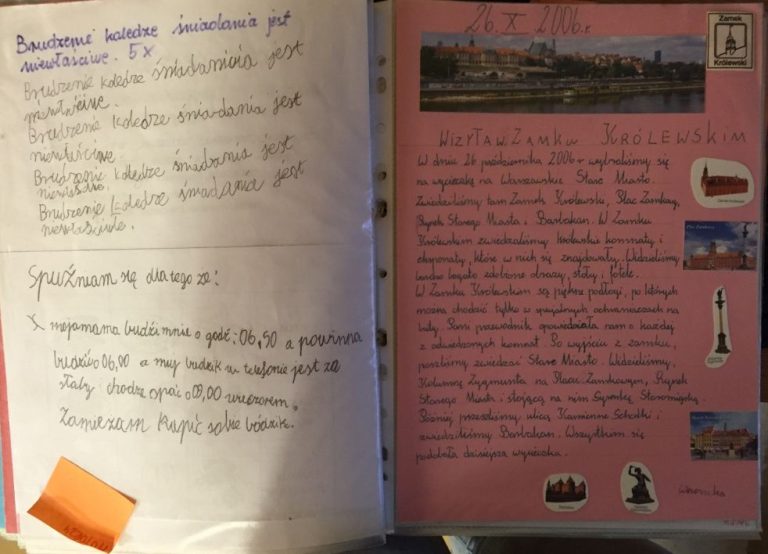 Brudzenie koledze śniadania jest
niewłaściwe. 5 x
Brudzenie koledze śniadania jest
niewłściwe.
Brudzenie koledze śniadania jest
Brudzenie kolędze śniadania jest
Brudzenie koledze śniadania jest
Spuźniam się dlatego że:
moja mama budzi mnie o godź: 06,50 a powinna
budzić o 06,00 a muj budzik w telefonie jest za
słaby chodzę spać o 09,00 wieczorem.
Zamieżam kupić sobie bódzik.
26. X 2006.r
Zamek
Królewski
WIZYTA W ZAMKU KRÓLEWSKIM
W dniu 26 października 2006 r wybraliśmy się
na wycieczkę na Warszawskie Stare Miasto.
Zwiedziliśmy tam Zamek Królewski, Plac Zamkowy,
Rynek Starego Miasta i Barbakan. W Zamku
Królewskim zwiedzaliśmy królewskie komnaty i
eksponaty, które w nich się znajdowały. Widzieliśmy
bardzo bogato zdobione obrazy, stoły i fotele.
W Zamku Królewskim są piękne podłogi, po których
można chodzić tylko w specjalnych ochraniaczach na
buty. Pani przewodnik opowiadała nam o każdej
z odwiedzonych komnat. Po wyjściu z zamku,
poszliśmy zwiedzać Stare Miasto. Widzieliśmy,
Kolumnę Zygmunta na Placu Zamkowym, Rynek
Starego Miasta i stojącą na nim Syrenkę Staromiejską.
Później przeszliśmy ulicą Kamienne Schodki i
zwiedziliśmy Barbakan. Wszystkim się
podobała dzisiejsza wycieczka.
Weronika